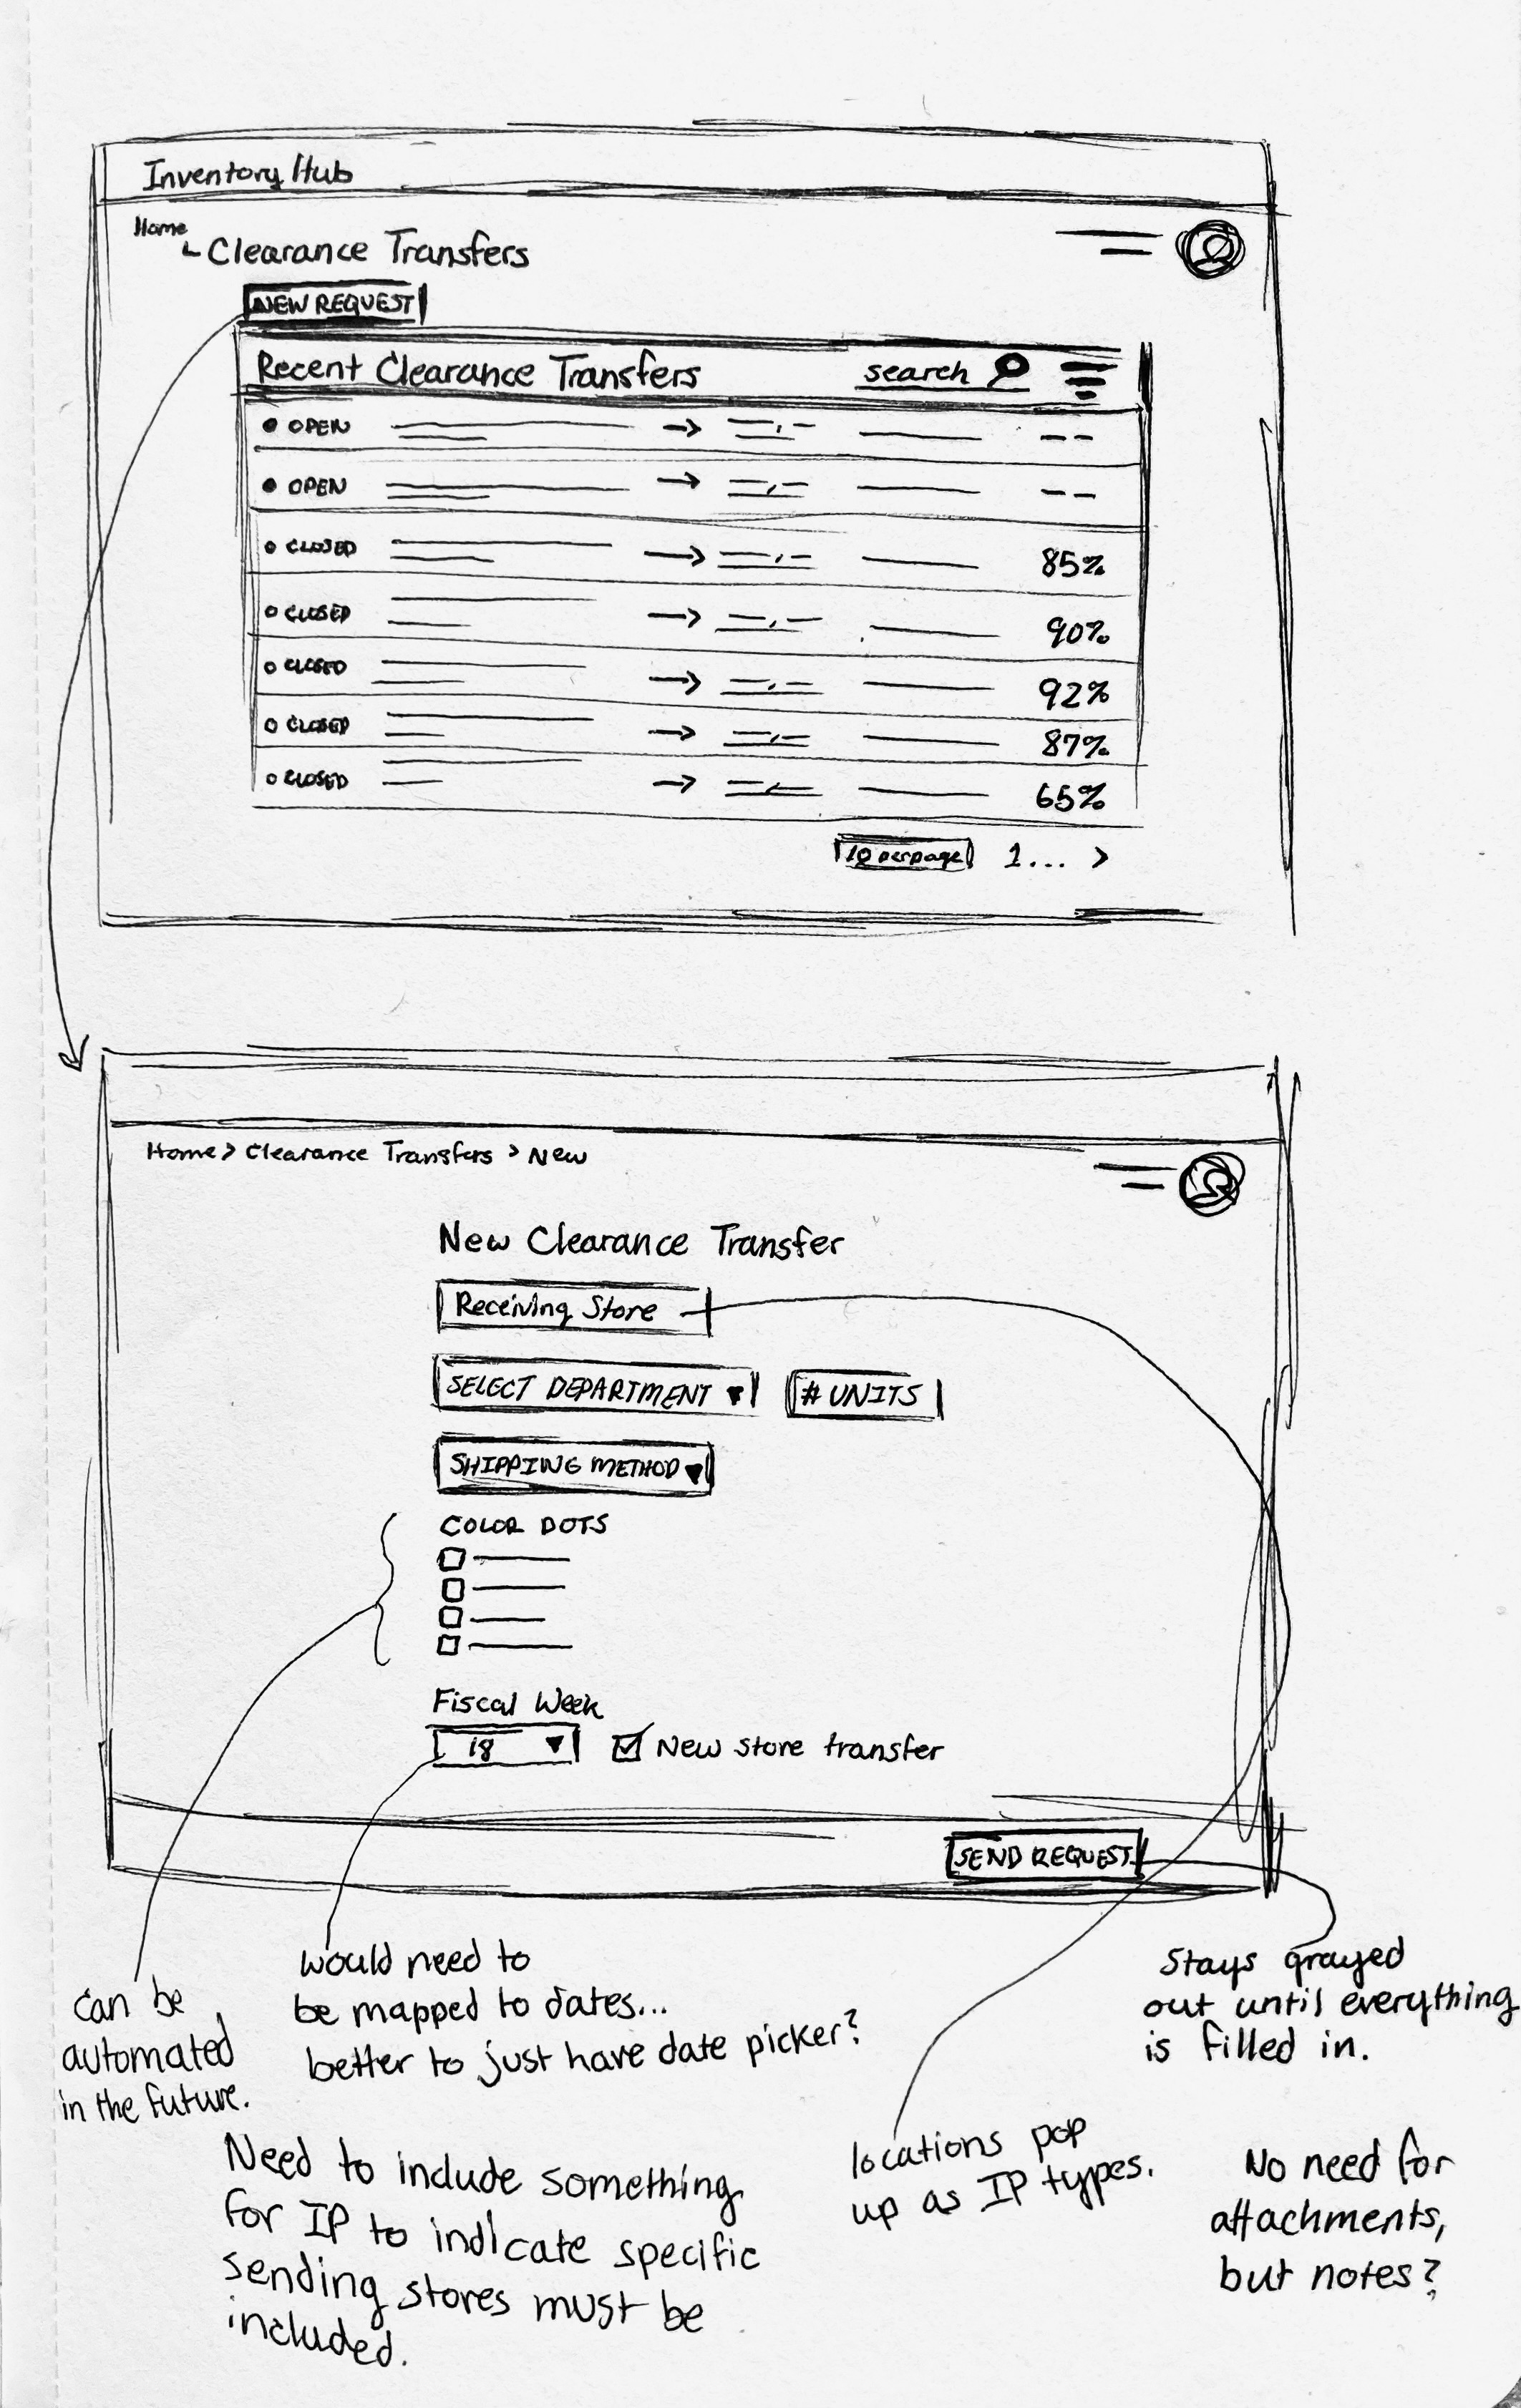 Inventory Hub
Home
Clearance Transfers
NEW REQUEST
Recent Clearance Transfers search
OPEN
OPEN
CLOSED 85%
CLOSED 90%
CLOSED 92%
CLOSED 87%
CLOSED 65%
10 per page 1... >
Home > Clearance Transfers > New
New Clearance Transfer
Receiving Store
SELECT DEPARTMENT # UNITS
SHIPPING METHOD
COLOR DOTS
Fiscal Week
18 New store transfer
SEND REQUEST
can be
automated
in the future.
would need to
be mapped to dates...
better to just have date picker?
Stays grayed
out until everything
is filled in.
locations pop
up as IP types.
Need to include something
for IP to indicate specific
sending stores must be
included.
No need for
attachments,
but notes?